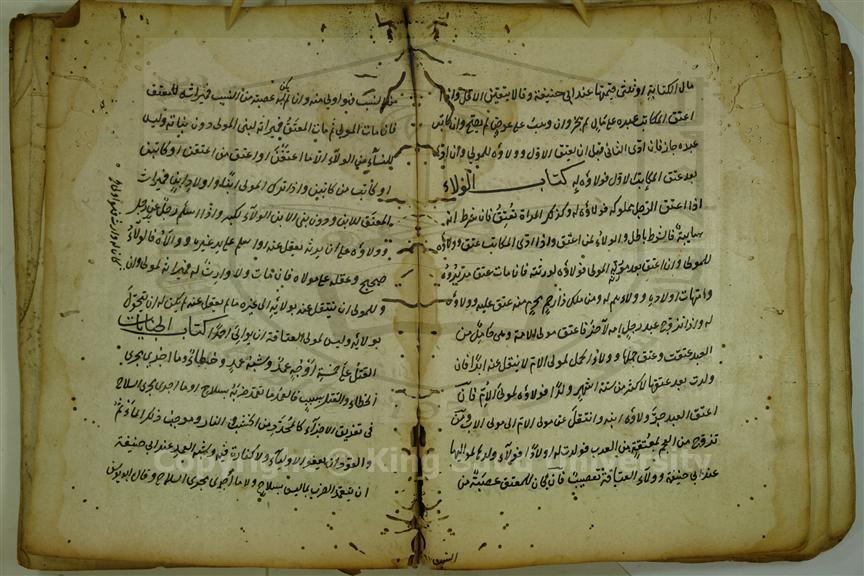 مال الكتابة او تبقى قيمتها عند ابي حنيفة وقالا يتعين الاقل واذا
اعتق المكاتب عبده على مال لم يجز وان وهب على عوض لم يصح وان كاتب
عبده جاز فان ادى الثاني قبل ان يعتق الاول فولاؤه للمولى وان ادى
بعد عتق المكاتب الاول فولاؤه له كتاب الولاء
اذا اعتق الرجل مملوكه فولاؤه له وكذلك المراة تعتق فان شرط انه
سايبة فالشرط باطل والولاء لمن اعتق واذا ادى المكاتب عتق وولاؤه
للمولى وان اعتق بعد موت المولى فولاؤه لورثته فاذا مات عتق مدبروه
وامهات اولاده وولاؤهم له ومن ملك ذا رحم محرم منه عتق عليه وولاؤه
له واذا تزوج عبد رجل امة لآخر فاعتق مولى الامة وهي حامل من
العبد عتقت وعتق حملها وولاؤ الحمل لمولى الام لا ينتقل عنه ابدا فان
ولدت بعد عتقها لاكثر من ستة اشهر ولدا فولاؤه لمولى الام فان
اعتق العبد جر ولاء ابنه وانتقل عن مولى الام الى مولى الاب ومن
تزوج من العجم بمعتقة من العرب فولدت له اولادا فولاء ولدها لمواليها
عند ابي حنيفة وولاء العتاقة تعصيب فان كان للمعتق عصبة من
النسب
من النسب فهو اولى منه وان لم يكن له عصبة من النسب فميراثه للمعتق
فان مات المولى ثم مات المعتق فميراثه لبني المولى دون بناته وليس
للنساء من الولاء الا ما اعتقن او اعتق من اعتقن او كاتبن
او كاتب من كاتبن واذا ترك المولى ابنا واولاد ابن فميراث
المعتق للابن دون بني الابن الولاء للكبر واذا اسلم رجل على يد رجل
ووالاه على ان يرثه ويعقل عنه او اسلم على يد غيره ووالاه فالولاء
صحيح وعقله على مولاه فان مات ولا وارث له فميراثه لمولاه وان
وللمولى ان ينتقل عنه بولائه الى غيره ما لم يعقل عنه لم يكن له ان يتحول
بولائه وليس لمولى العتاقة ان يوالي احدا كتاب الجنايات
القتل على خمسة اوجه عمد وشبه عمد وخطاء وما اجري مجرى
الخطاء والقتل بسبب فالعمد ما تعمد ضربه بسلاح او ما اجري مجرى السلاح
في تفريق الاجزاء كالمحدد من الخشب والنار وموجب ذلك الماثم
والقود الا ان يعفو الاولياء ولا كفارة فيه وشبه العمد عند ابي حنيفة
ان يتعمد الضرب بما ليس بسلاح ولا ما اجري مجرى السلاح وقال ابو يوسف
Copyright © King Saud University